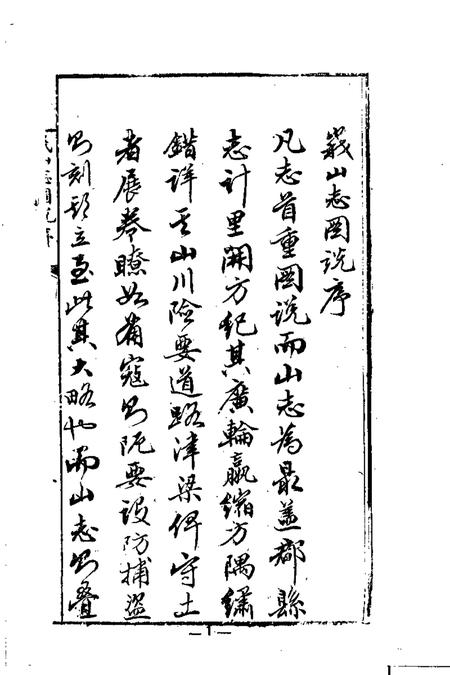 峩山志圖説序
凡志首重圖説而山志為最盖郡縣
志計里開方紀其廣輪贏縮方隅繡
錯詳其山川險要道路津梁俾守土
者展卷瞭如備寇則阨要設防捕盜
則刻期立至此其大略也而山志則疊
一1一